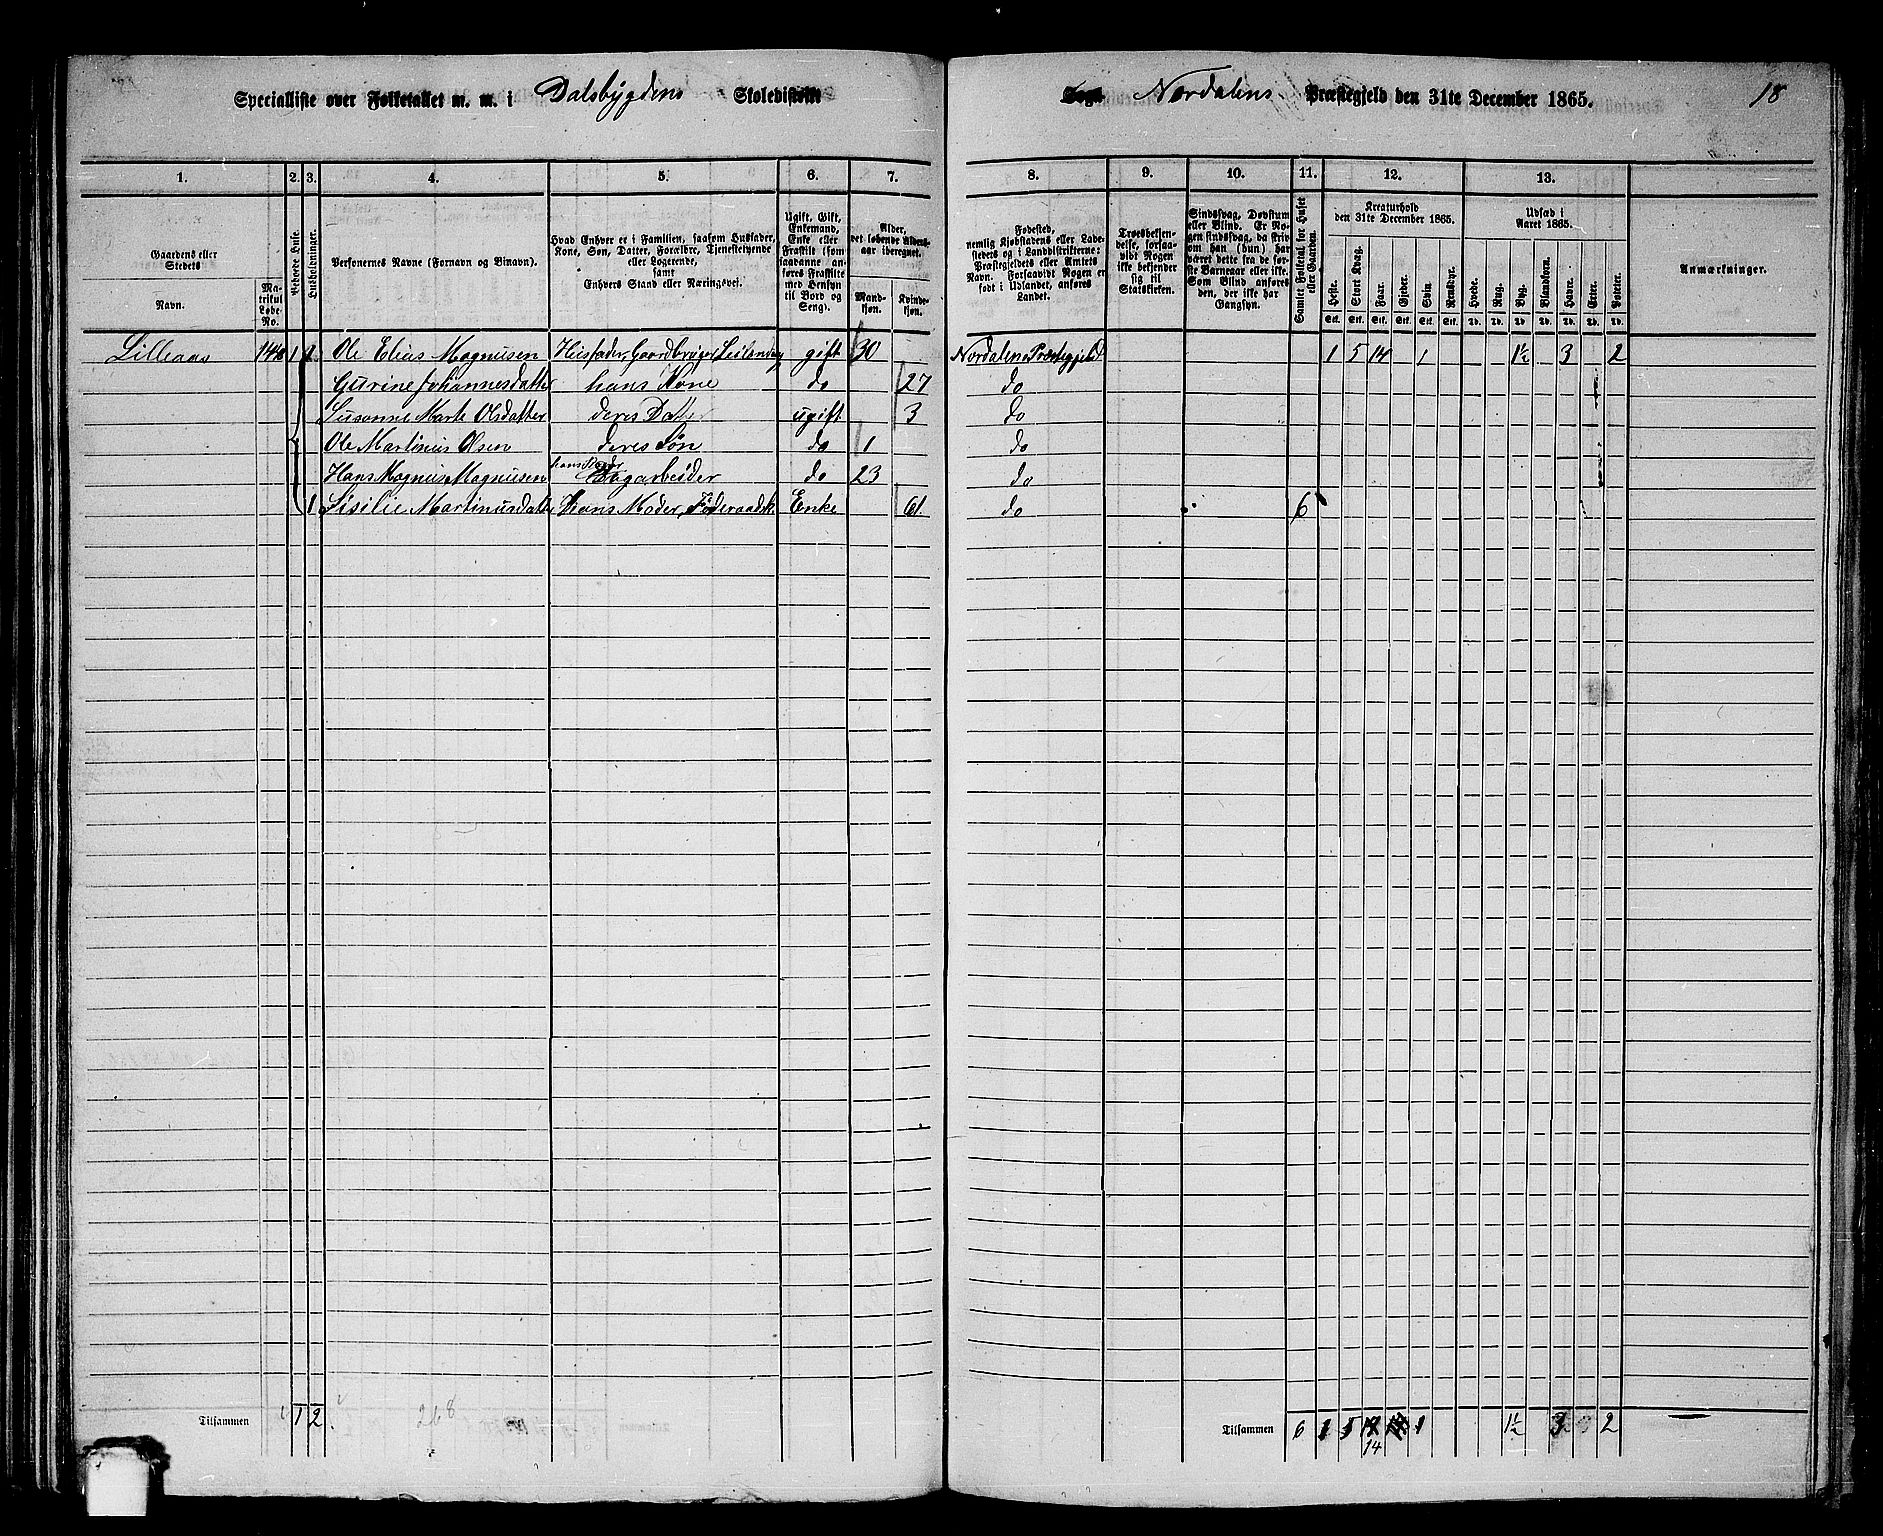 Specialliste over Folketallet m. m. i Dalsbygdens Skoledistrikt
Sogn Nordalens Præstegjeld den 31te December 1865. 18
1. 2. 3. 4. 5. 6. 7. 8. 9. 10. 11. 12. 13.
Gaardens eller Stedets
Navn.
Matrikul Løbe-No.
Beboede Huse.
Husholdninger.
Personernes Navne (Fornavn og Binavn).
Hvad Enhver er i Familien, saasom Husfader, Kone, Søn, Datter, Forældre, Tjenestetyende eller Logerende,
samt
Enhvers Stand eller Næringsvei.
Ugift, Gift, Enkemand, Enke eller Fraskilt (som saadanne anføres Fraskilte med Hensyn til Bord og Seng).
Alder, det løbende Aldersaar iberegnet.
Mandkjøn.
Kvindekjøn.
Fødested, nemlig Kjøbstadens eller Ladestedets og i Landdistrikterne: Præstegjeldets eller Amtets Navn. Forsaavidt Nogen er født i Udlandet, anføres Landet.
Troesbekjendelse, forsaavidt Nogen ikke bekjender sig til Statskirken.
Sindssvag, Døvstum eller Blind. Er Nogen sindssvag, da skriv om han (hun) har været dette fra de første Barneaar eller ikke. Som Blind anføres den, der ikke har Gangsyn.
Samlet Folketal for Huset eller Gaarden.
Kreaturhold den 31te December 1865.
Heste. Stort Kvæg. Faar. Gjeder. Svin. Rensdyr.
Stk. Stk. Stk. Stk. Stk. Stk.
Udsæd i Aaret 1865.
Hvede. Rug. Byg. Blandkorn. Havre. Erter. Poteter.
Td. Td. Td. Td. Td. Td. Td.
Anmærkninger.
Lilleaas 1 1 Ole Elias Magnusen Husfader, Gaardbruger, Leilending gift 30 Nordalens Præstegjeld 1 5 14 1 1½ 3 2
Gurine Johannesdatter hans Kone do 27 do
Susanne Marte Olsdatter deres Datter ugift 3 do
Ole Martinus Olsen deres Søn do 1 do
Hans Magnus Magnusen hans Broder Dagarbeider do 23 do
1 Sisilie Martinusdatter Hans Moder, Føderaadsk Enke 61 do 6
Tilsammen 1 2 268
Tilsammen 6 1 5 14 1 1½ 3 2